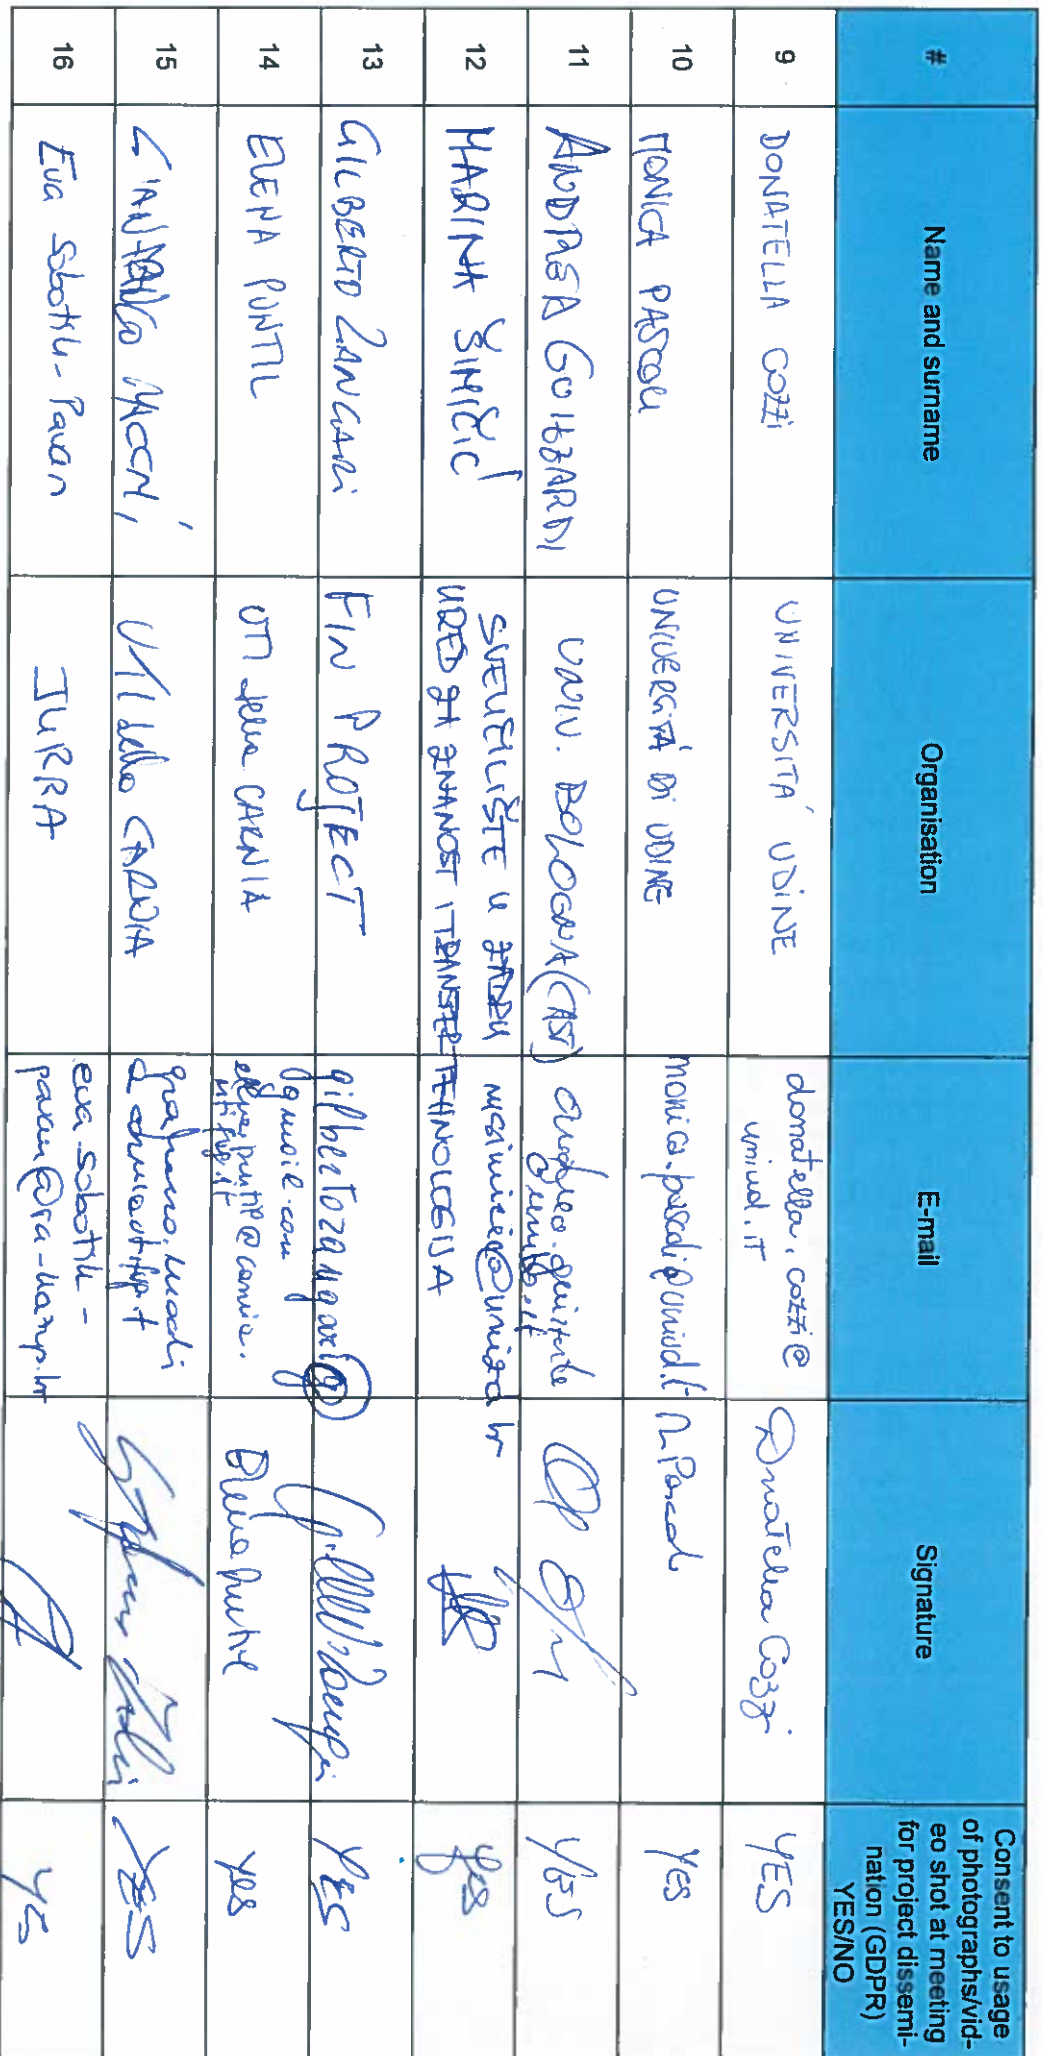 # Name and surname Organisation E-mail Signature Consent to usage
of photographs/vid-
eo shot at meeting
for project dissemi-
nation (GDPR)
YES/NO
9 DONATELLA COZZI UNIVERSITA' UDINE donatella.cozzi@
uniud.it Donatella Cozzi YES
10 MONICA PASCOLI UNIVERSITÀ DI UDINE monica.pascoli@uniud.it M Pascoli YES
11 ANDREA UNIV. BOLOGNA YES
12 MARINA ŠIMIČIĆ SVEUČILIŠTE U ZADRU
URED ZA ZNANOST I TRANSFER TEHNOLOGIJA msimicic@unizd.hr yes
13 GILBERTO ZANGARI FIN PROJECT gilbertozangari@
gmail.com YES
14 ELENA PUNTIL UTI della CARNIA elena.puntil@carnia.
utifvg.it Elena Puntil yes
15 UTI della CARNIA YES
16 Eva Sobotik-Pavan JURRA eva.sobotik-
pavan@ra- YES